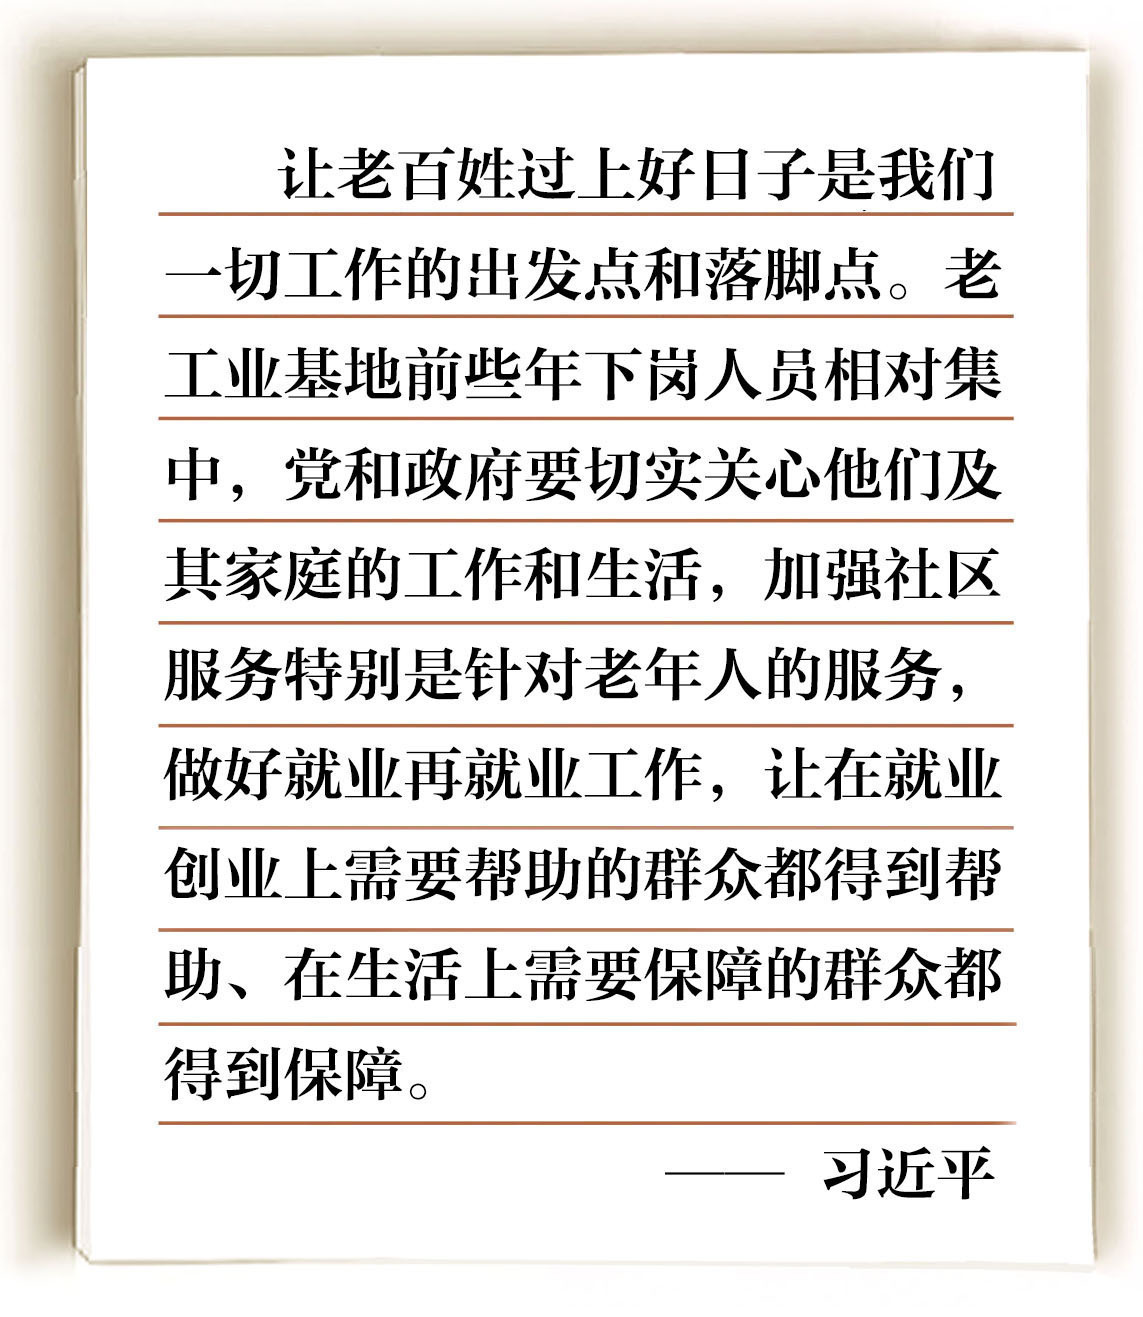 让老百姓过上好日子是我们
一切工作的出发点和落脚点。老
工业基地前些年下岗人员相对集
中，党和政府要切实关心他们及
其家庭的工作和生活，加强社区
服务特别是针对老年人的服务，
做好就业再就业工作，让在就业
创业上需要帮助的群众都得到帮
助、在生活上需要保障的群众都
得到保障。
—— 习近平